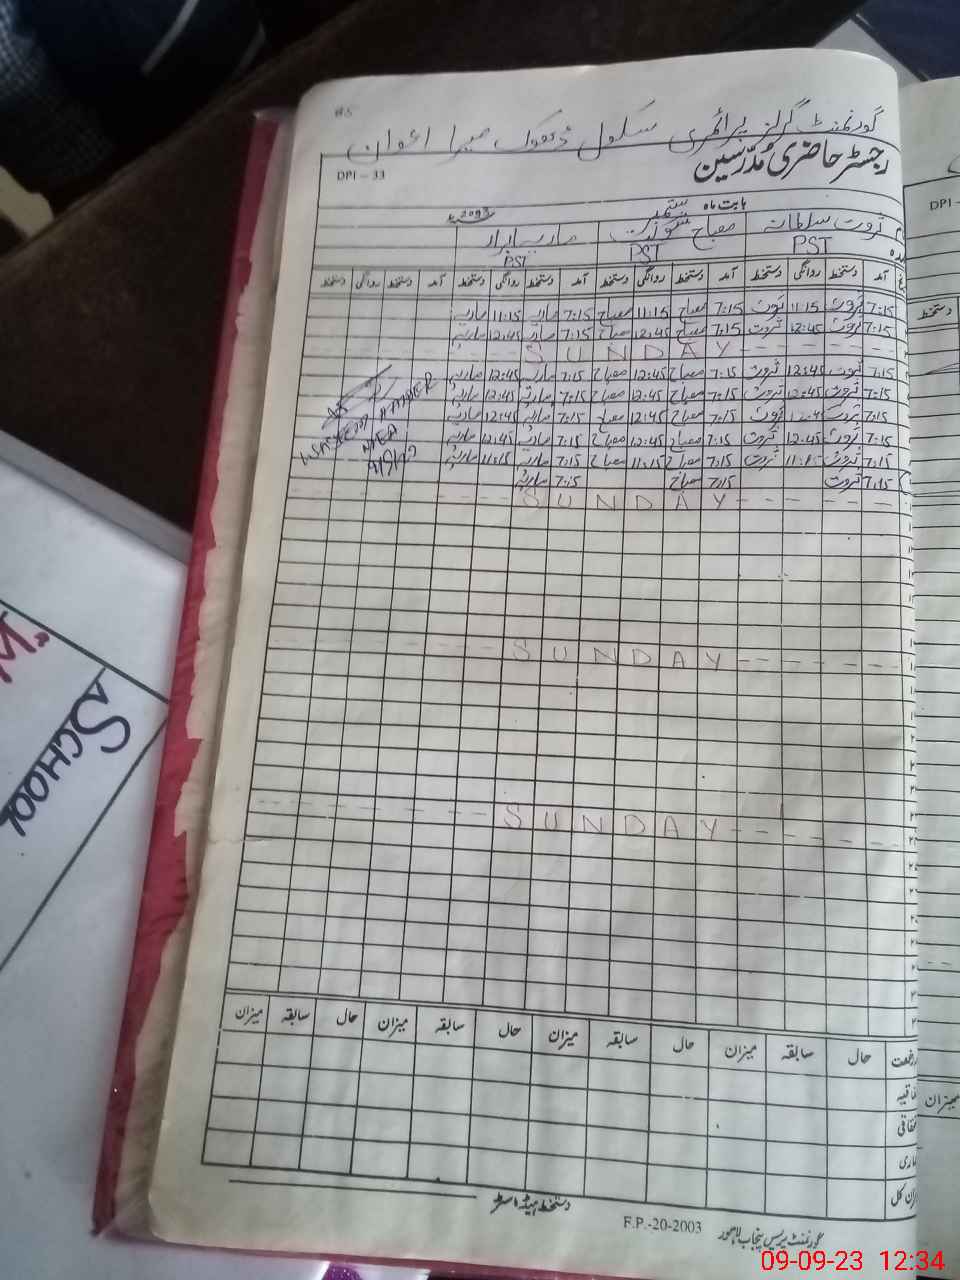 گورنمنٹ گرلز پرائمری سکول ڈھوک میرا اعوان
رجسٹر حاضری مُدرّسین
DPI – 33
بابت ماہ ستمبر 2023ء
ثروت سلطانہ مصباح شوکت ماریہ ابرار
PST PST PST
آمد دستخط روانگی دستخط آمد دستخط روانگی دستخط آمد دستخط روانگی دستخط آمد دستخط روانگی دستخط
7:15 ثروت 11:15 ثروت 7:15 مصباح 11:15 مصباح 7:15 ماریہ 11:15 ماریہ
7:15 ثروت 12:45 ثروت 7:15 مصباح 12:45 مصباح 7:15 ماریہ 12:45 ماریہ
SUNDAY
7:15 ثروت 12:45 ثروت 7:15 مصباح 12:45 مصباح 7:15 ماریہ 12:45 ماریہ
7:15 ثروت 12:45 ثروت 7:15 مصباح 12:45 مصباح 7:15 ماریہ 12:45 ماریہ
7:15 ثروت 12:45 ثروت 7:15 مصباح 12:45 مصباح 7:15 ماریہ 12:45 ماریہ
7:15 ثروت 12:45 ثروت 7:15 مصباح 12:45 مصباح 7:15 ماریہ 12:45 ماریہ
7:15 ثروت 11:15 ثروت 7:15 مصباح 11:15 مصباح 7:15 ماریہ 11:15 ماریہ
7:15 ثروت 7:15 مصباح 7:15 ماریہ
SUNDAY
MEA
SUNDAY
SUNDAY
حال سابقہ میزان حال سابقہ میزان حال سابقہ میزان حال سابقہ میزان
دستخط ہیڈ ماسٹر
F.P.-20-2003
گورنمنٹ پریس پنجاب لاہور
DPI –
دستخط
میزان
SCHOOL
09-09-23 12:34